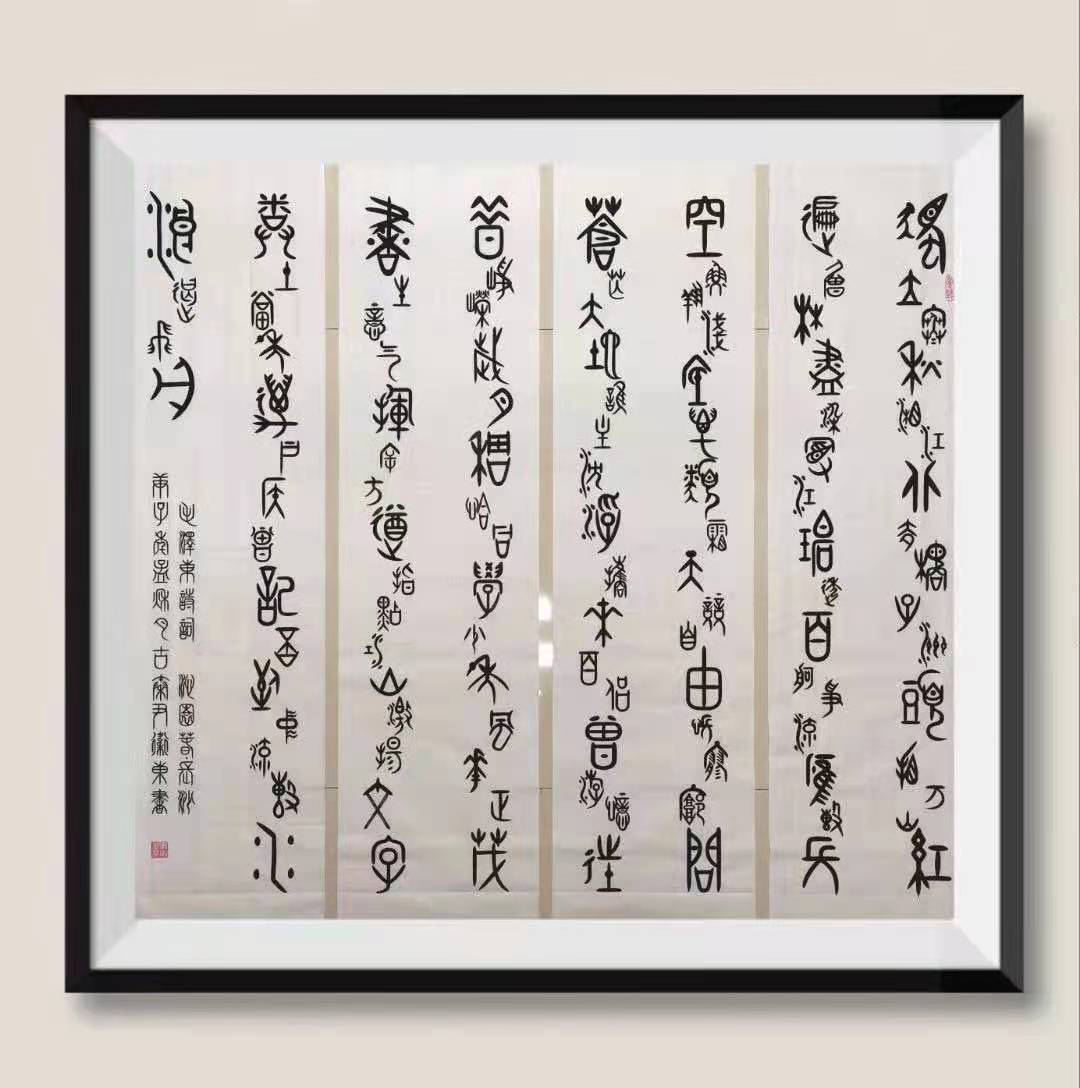 獨立寒秋湘江北去橘子洲頭看万山紅
遍層林盡染漫江碧透百舸爭流鷹擊長
空魚翔淺底萬類霜天競自由悵寥廓問
蒼茫大地誰主沈浮攜來百侶曾游憶往
昔崢嶸歲月稠恰同學少年風華正茂
書生意气揮斥方遒指點江山激揚文字
糞土當年萬戶侯曾記否到中流擊水
浪遏飛舟
毛澤東詩詞 沁園春長沙
庚子年孟秋月古尹衛東書